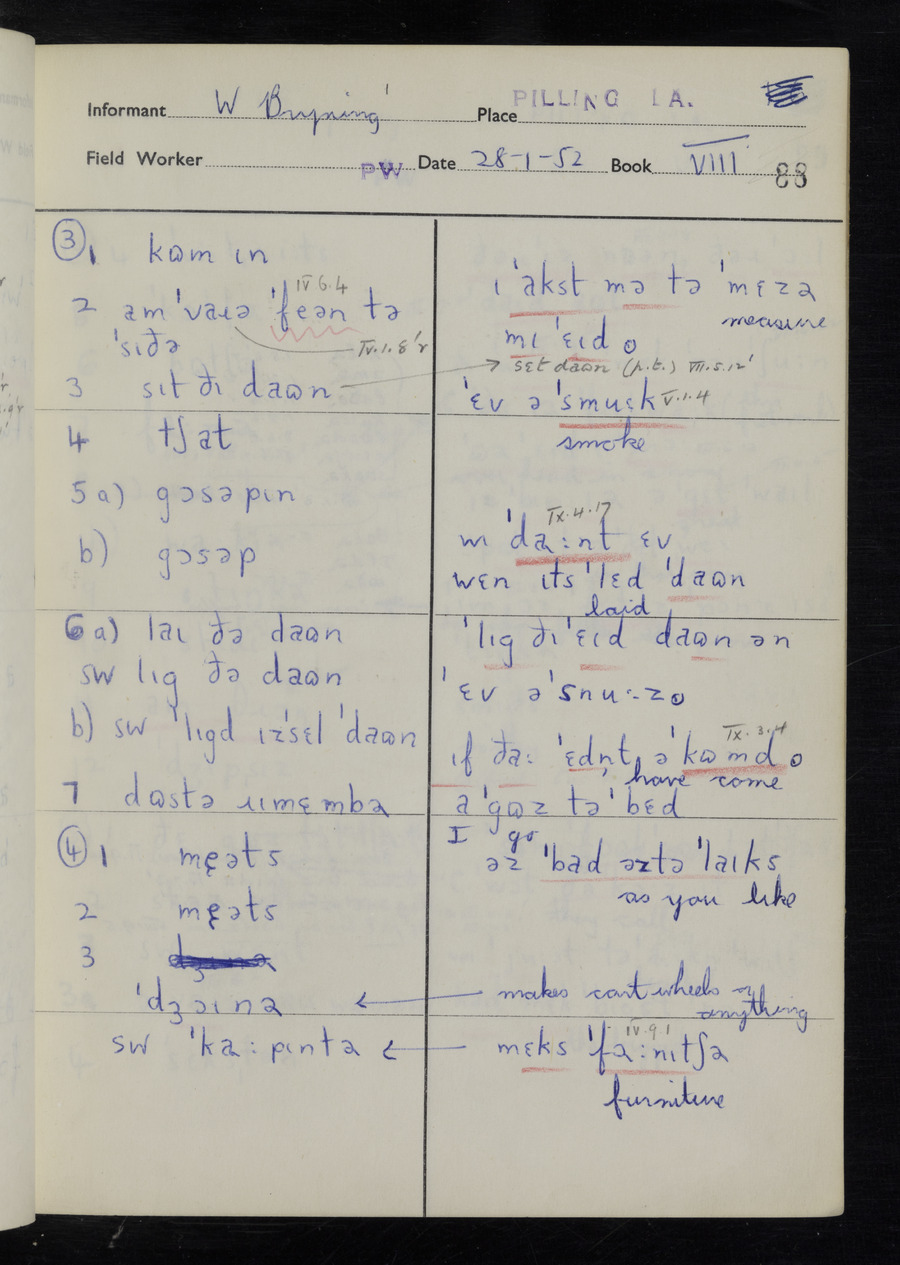 Informant W Bryning Place PILLING LA.
Field Worker PW Date 28-1-52 Book VIII 88
③ 1 kɷm ɩn
2 am ˈvaɩə ˈfeən tə
IV 6.4
ˈsɩðə
IV.1.8'r
3 sɩt ðɩ daɷn
4 tʃat
5 a) gɔsəpɩn
b) gɔsəp
6 a) laɩ ðə daɷn
SW lɩg ðə daɷn
b) SW ˈlɩgd ɩzˈsɛl ˈdaɷn
7 dɷstə ɹɩmɛmbə
④ 1 mɛəts
2 mɛəts
3
ˈdʒɔɩnə
SW ˈka:pɩntə
ɩ ˈakst mə tə ˈmɛzə
measure
mɩ ˈɛɩd o
sɛt daɷn (p.t.) VII.5.12'
ˈɛv ə ˈsmuɛk V.1.4
smoke
IX.4.17
wɩ ˈda:nt ɛv
wɛn ɩts ˈlɛd ˈdaɷn
laid
ˈlɩg ðɩ ˈɛɩd daɷn ən
ˈɛv ə ˈsnu:z o
IX.3.4
ɩf ða: ˈɛdnt ə ˈkɷmd o
have come
a ˈgɷz tə ˈbɛd
I go
əz ˈbad əztə ˈlaɩks
as you like
makes cart wheels or
anything
IV.9.1
mɛks ˈfə:nɩtʃə
furniture